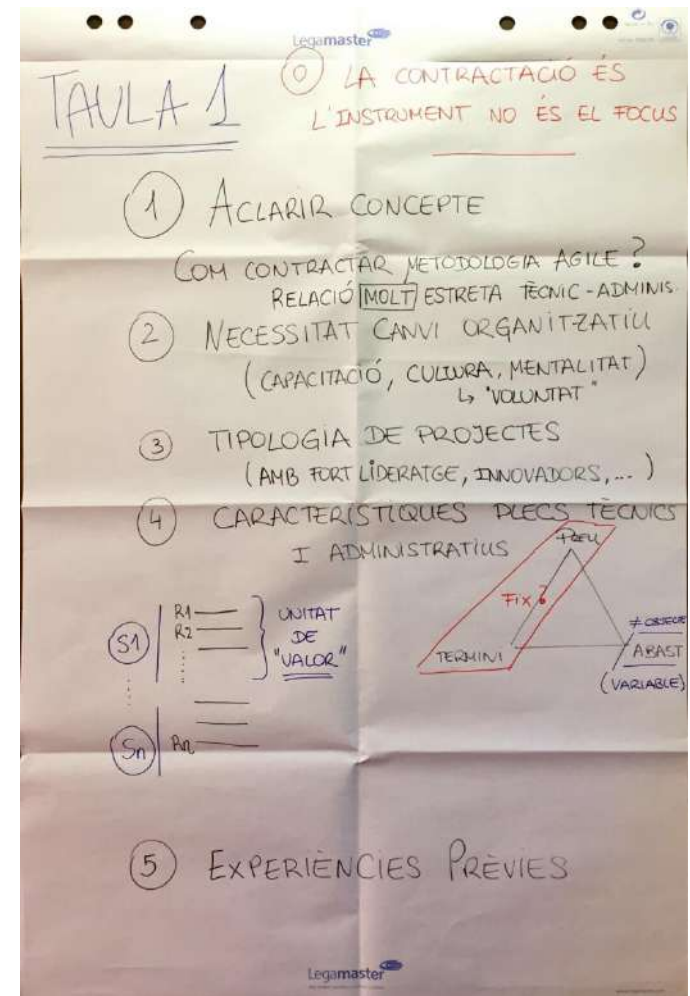 Legamaster
TAULA 1
0 LA CONTRACTACIÓ ÉS
L'INSTRUMENT NO ÉS EL FOCUS
1 ACLARIR CONCEPTE
COM CONTRACTAR METODOLOGIA AGILE?
RELACIÓ MOLT ESTRETA TÈCNIC-ADMINIS.
2 NECESSITAT CANVI ORGANITZATIU
(CAPACITACIÓ, CULTURA, MENTALITAT)
↳ "VOLUNTAT"
3 TIPOLOGIA DE PROJECTES
(AMB FORT LIDERATGE, INNOVADORS,...)
4 CARACTERÍSTIQUES PLECS TÈCNICS
I ADMINISTRATIUS
PREU
FIX
TERMINI
≠ OBJECTE
ABAST
(VARIABLE)
S1
R1
R2
UNITAT
DE
"VALOR"
Sn
Rn
5 EXPERIÈNCIES PRÈVIES
Legamaster